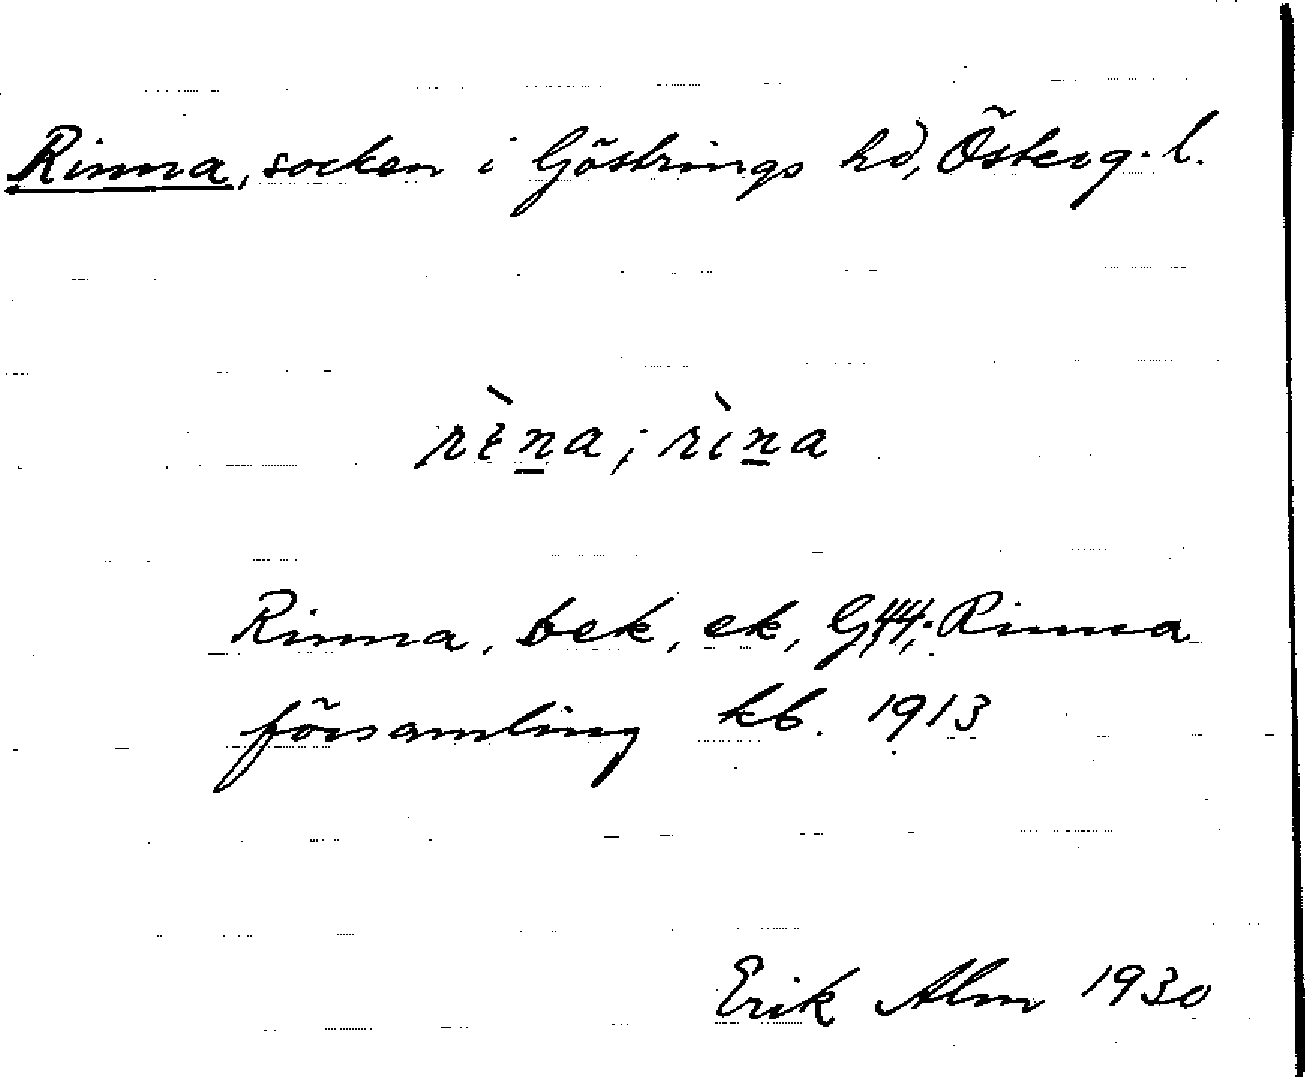 Rinna, socken i Göstrings hd, Österg. l.
rὲna; rìna
Rinna, bek, ek, G44; Rinna
församling kb. 1913
Erik Alm 1930